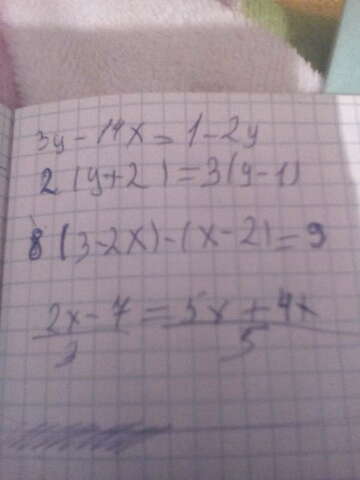 3y - 14x = 1 - 2y
2 (y + 2) = 3(y - 1)
8 (3 - 2x) - (x - 2) = 9
2x - 7 = 5x + 4x
3 5